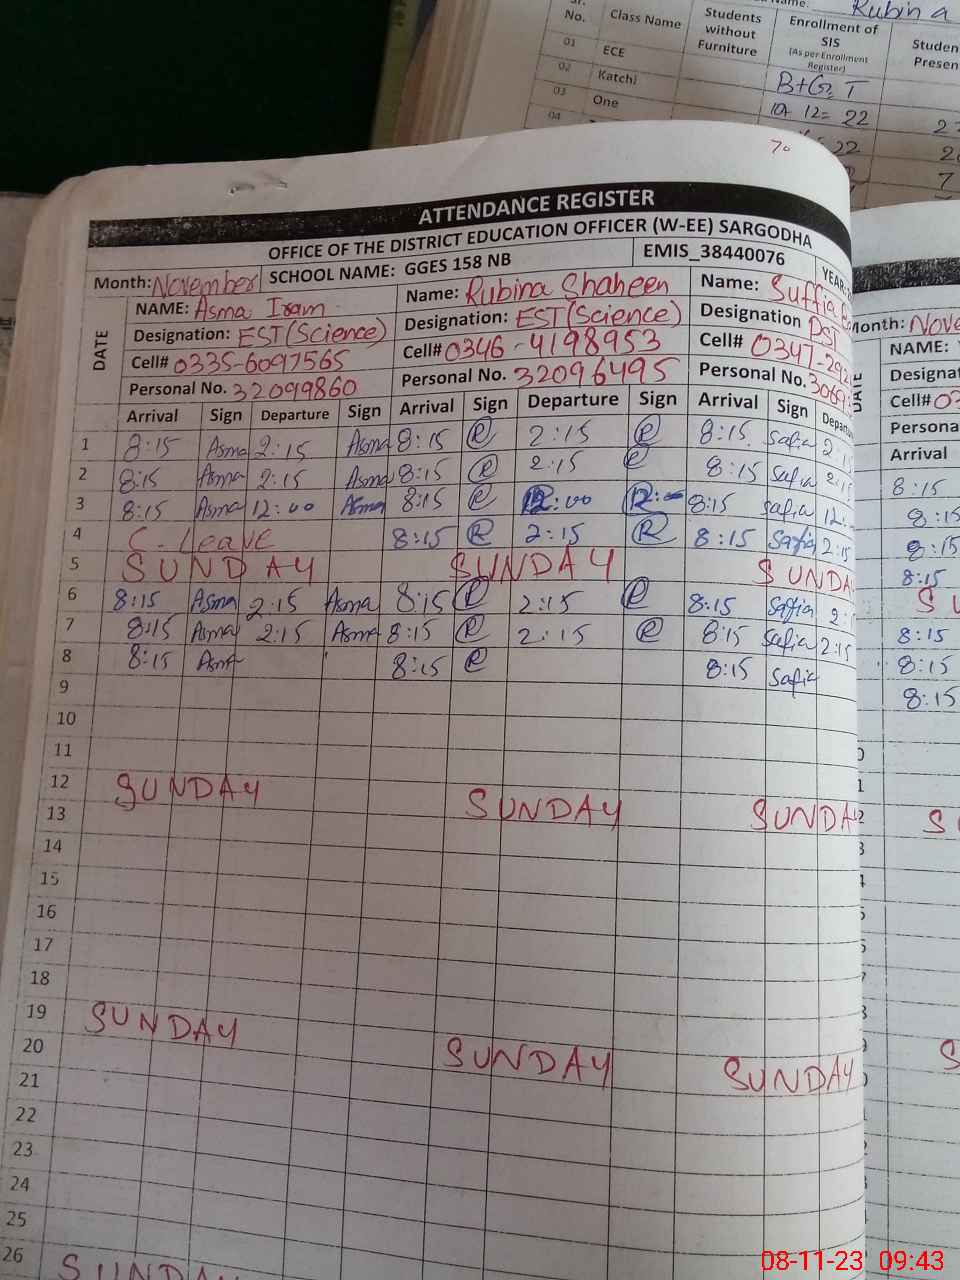 Name: Rubina
No. Class Name Students without Furniture Enrollment of SIS (As per Enrollment Register)
01 ECE B+G= T
02 Katchi 10+ 12= 22
03 One 22
04
70
ATTENDANCE REGISTER
OFFICE OF THE DISTRICT EDUCATION OFFICER (W-EE) SARGODHA
Month: November SCHOOL NAME: GGES 158 NB EMIS_38440076
NAME: Asma Iram Name: Rubina Shaheen Name: Suffia
Designation: EST (Science) Designation: EST (Science) Designation DST
Cell# 0335-6097565 Cell# 0346-4198953 Cell# 0347-292
Personal No. 32099860 Personal No. 32096495 Personal No. 3069
DATE Arrival Sign Departure Sign Arrival Sign Departure Sign Arrival Sign
1 8:15 Asma 2:15 Asma 8:15 R 2:15 R 8:15 Safia 2:15
2 8:15 Asma 2:15 Asma 8:15 R 2:15 R 8:15 Safia 2:15
3 8:15 Asma 12:00 Asma 8:15 R 12:00 8:15 Safia 12:
4 C-Leave 8:15 R 2:15 R 8:15 Safia 2:15
5 SUNDAY SUNDAY SUNDAY
6 8:15 Asma 2:15 Asma 8:15 R 2:15 R 8:15 Safia
7 8:15 Asma 2:15 Asma 8:15 R 2:15 R 8:15 Safia 2:15
8 8:15 Asma 8:15 R 8:15 Safia
9
10
11
12 SUNDAY SUNDAY SUNDAY
13
14
15
16
17
18
19 SUNDAY SUNDAY SUNDAY
20
21
22
23
24
25
26 SUNDAY
NAME:
Cell#
Arrival
8:15
8:15
8:15
8:15
8:15
8:15
8:15
08-11-23 09:43